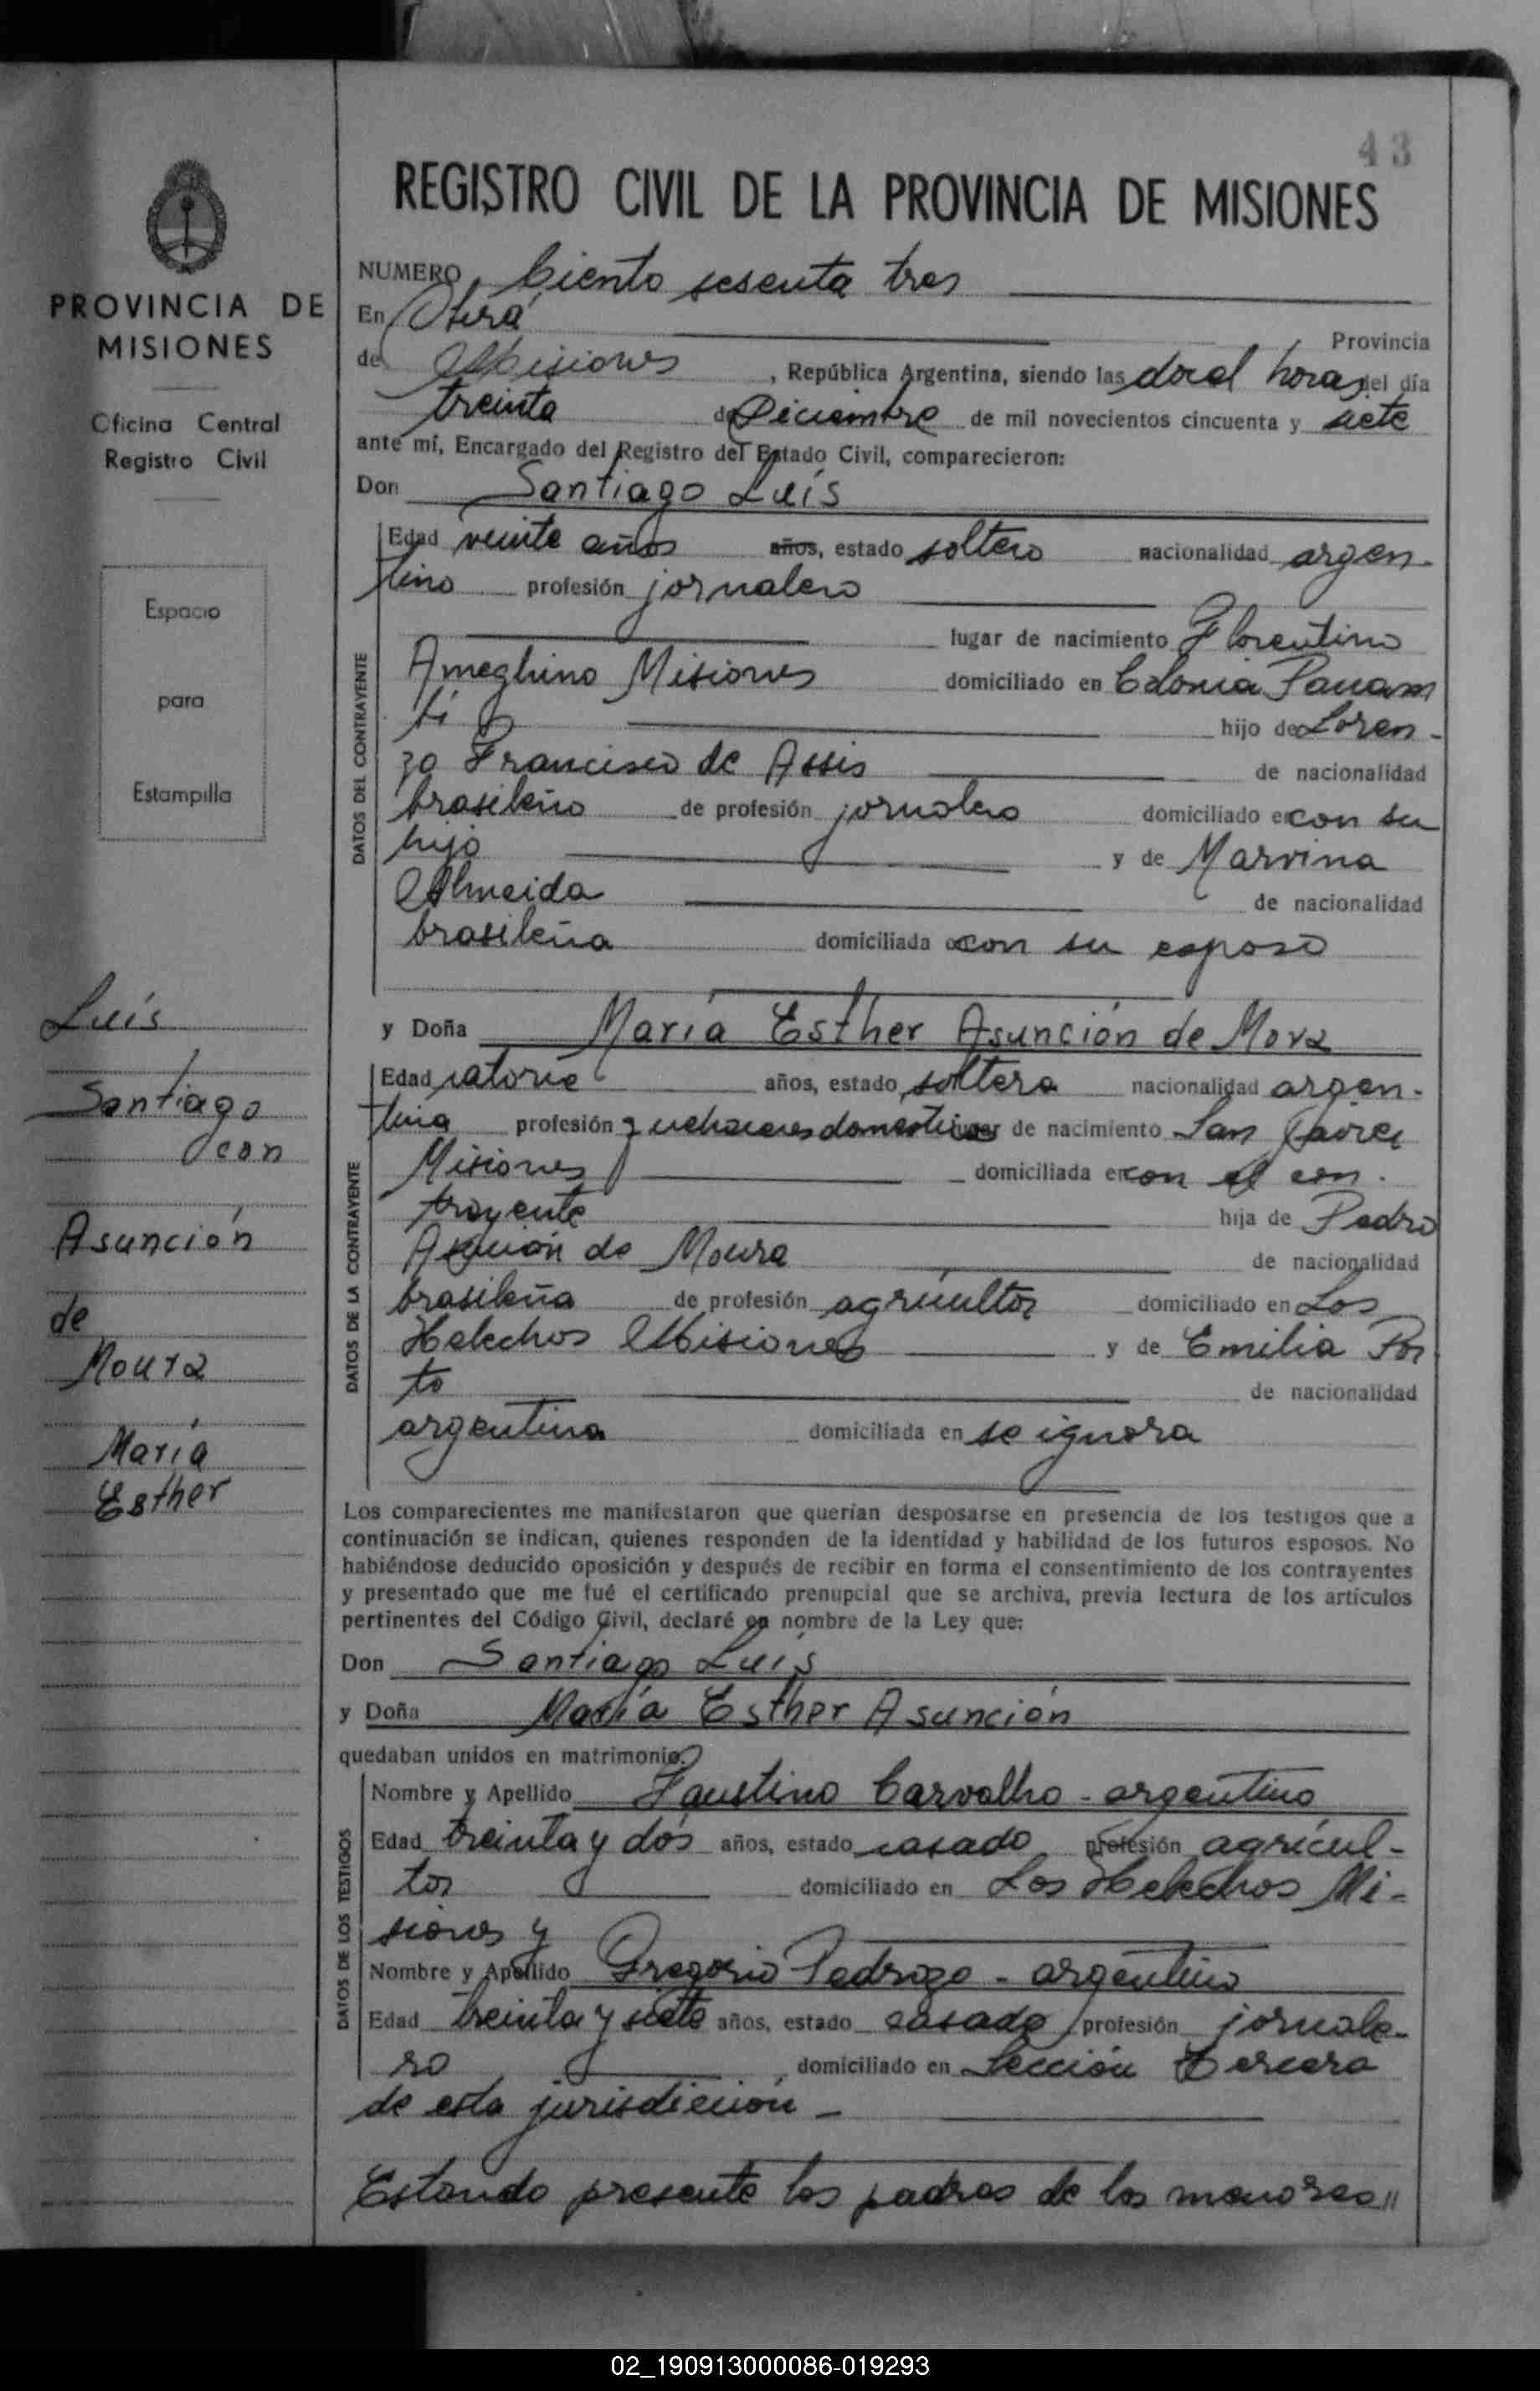 43
REGISTRO CIVIL DE LA PROVINCIA DE MISIONES
PROVINCIA DE
MISIONES
Oficina Central
Registro Civil
Espacio
para
Estampilla
Luís
Santiago
con
Asunción
de
Moura
María
Esther
NUMERO Ciento sesenta tres
En Oberá
Provincia
de Misiones, República Argentina, siendo las horas del día
treinta de Diciembre de mil novecientos cincuenta y siete
ante mí, Encargado del Registro del Estado Civil, comparecieron:
Don Santiago Luís
DATOS DEL CONTRAYENTE
Edad veinte años años, estado soltero nacionalidad argen-
tino profesión jornalero
lugar de nacimiento Florentino
Ameghino Misiones domiciliado en Colonia Panam
bi hijo de Loren-
zo Francisco de Assis de nacionalidad
brasileño de profesión jornalero domiciliado en con su
hijo y de Marvina
Almeida de nacionalidad
brasileña domiciliada en con su esposo
y Doña María Esther Asunción de Mora
DATOS DE LA CONTRAYENTE
Edad catorce años, estado soltera nacionalidad argen-
tina profesión quehaceres domesticos lugar de nacimiento San Javier
Misiones domiciliada en con el con-
trayente hija de Pedro
Asunción de Moura de nacionalidad
brasileña de profesión agricultor domiciliado en Los
Helechos Misiones y de Emilia Por
to de nacionalidad
argentina domiciliada en se ignora
Los comparecientes me manifestaron que querían desposarse en presencia de los testigos que a
continuación se indican, quienes responden de la identidad y habilidad de los futuros esposos. No
habiéndose deducido oposición y después de recibir en forma el consentimiento de los contrayentes
y presentado que me fué el certificado prenupcial que se archiva, previa lectura de los artículos
pertinentes del Código Civil, declaré en nombre de la Ley que:
Don Santiago Luís
y Doña María Esther Asunción
quedaban unidos en matrimonio.
DATOS DE LOS TESTIGOS
Nombre y Apellido Faustino Carvalho - argentino
Edad treinta y dos años, estado casado profesión agricul-
tor domiciliado en Los Helechos Mi-
siones y
Nombre y Apellido Gregorio Pedrozo - argentino
Edad treinta y siete años, estado casado profesión jornale-
ro, domiciliado en Sección Tercera
de esta jurisdicción -
Estando presente los padres de los menores //
02_190913000086-019293